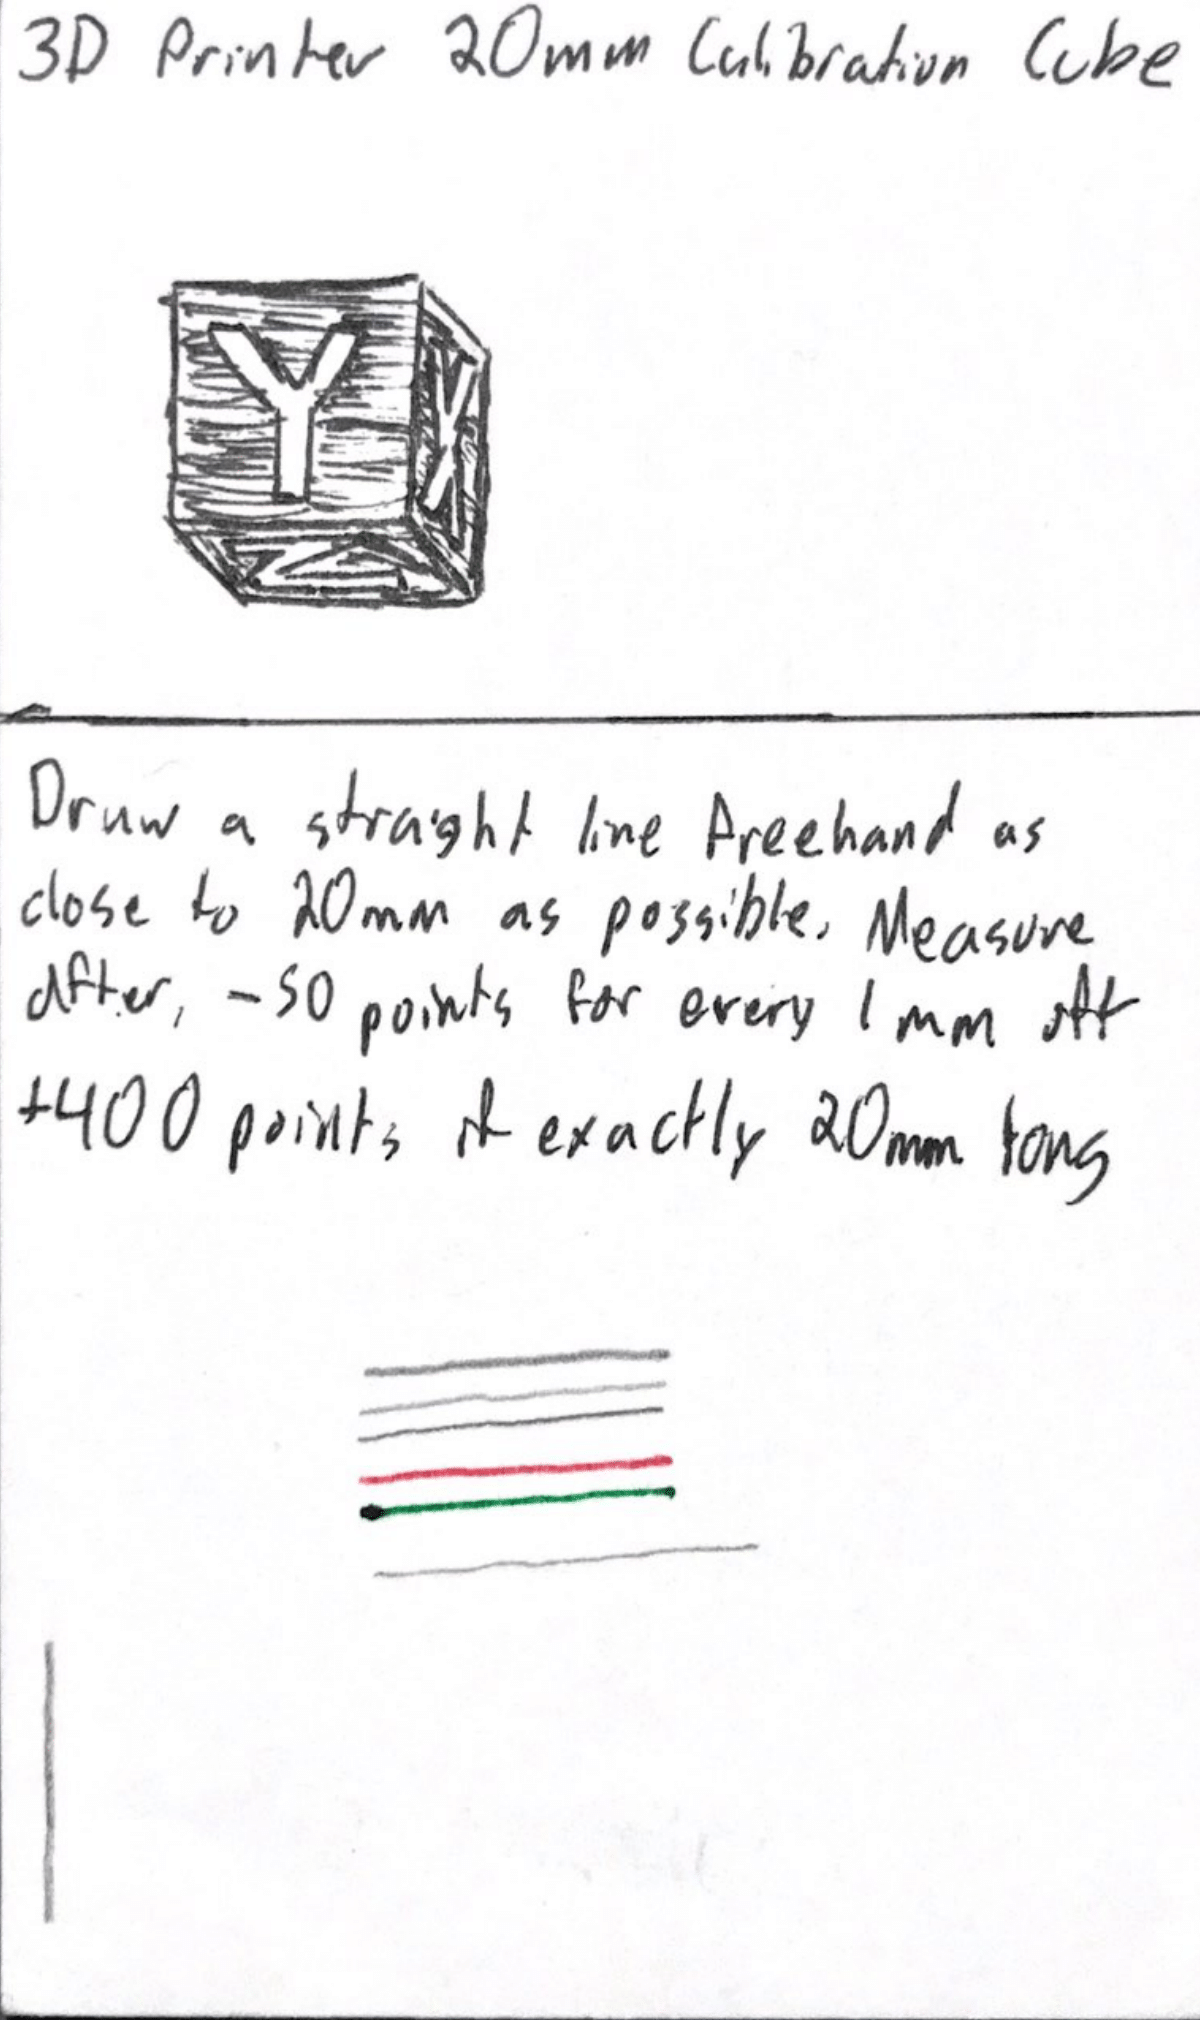 3D Printer 20mm Calibration Cube
Y
X
Z
Draw a straight line freehand as
close to 20mm as possible. Measure
after, -50 points for every 1mm off
+400 points if exactly 20mm long